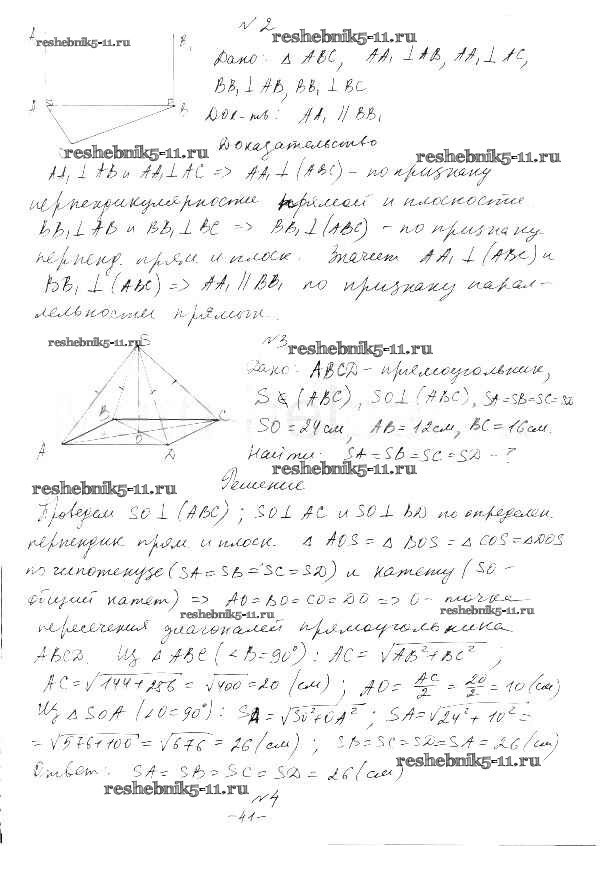 №2
reshebnik5-11.ru reshebnik5-11.ru
Дано: △ ABC, AA₁⊥AB, AA₁⊥AC,
BB₁⊥AB, BB₁⊥BC
Док-ть: AA₁ ∥ BB₁
Доказательство
reshebnik5-11.ru reshebnik5-11.ru
AA₁⊥AB и AA₁⊥AC => AA₁⊥(ABC) - по признаку
перпендикулярности прямой и плоскости.
BB₁⊥AB и BB₁⊥BC => BB₁⊥(ABC) - по признаку
перпенд. прям и плоск. Значит AA₁⊥(ABC) и
BB₁⊥(ABC) => AA₁∥BB₁ по признаку парал-
лельности прямых.
reshebnik5-11.ru
№3
reshebnik5-11.ru
Дано: ABCD - прямоугольник,
S∉(ABC), SO⊥(ABC), SA=SB=SC=SD
SO=24см, AB=12см, BC=16см.
Найти: SA=SB=SC=SD-?
reshebnik5-11.ru
Решение
reshebnik5-11.ru
Проведем SO⊥(ABC); SO⊥AC и SO⊥BD по определен
перпендик прям и плоск. △AOS=△BOS=△COS=△DOS
по гипотенузе (SA=SB=SC=SD) и катету (SO-
общий катет) => AO=BO=CO=DO => O- точка
reshebnik5-11.ru reshebnik5-11.ru
пересечения диагоналей прямоугольника
ABCD. Из △ABC (∠B=90°): AC=√AB²+BC²;
AC=√144+256=√400=20(см); AO=AC/2=20/2=10(см)
Из △SOA (∠O=90°): SA=√SO²+OA²; SA=√24²+10²=
=√576+100=√676=26(см); SB=SC=SD=SA=26(см)
reshebnik5-11.ru
Ответ: SA=SB=SC=SD=26(см)
reshebnik5-11.ru
№4
-41-
A₁
B₁
A
B
S
B
C
O
A
D